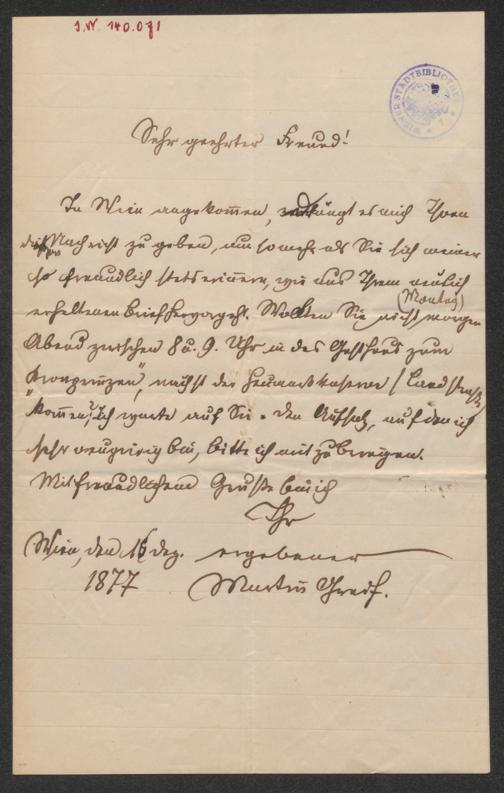 J.N. 140.071
WIENER STADTBIBLIOTHEK
Sehr geehrter Freund!
In Wien angekommen, drängt es mich Ihnen
Nachricht zu geben, um so mehr als Sie sich meiner
so freundlich stets erinnern, wie aus Ihrem neulich
erhaltenen Brief hervorgeht. Wollen Sie nicht morgen
(Montag)
Abend zwischen 8 u. 9. Uhr in das Gasthaus zum
"Kronprinzen", nächst der Heumarktkaserne (Landstraße
kommen? Ich warte auf Sie. Den Aufsatz, auf den ich
sehr neugierig bin, bitte ich mitzubringen.
Mit freundlichem Gruße bin ich
Ihr
Wien, den 16 Dez. ergebener
1877 Martin Greif.